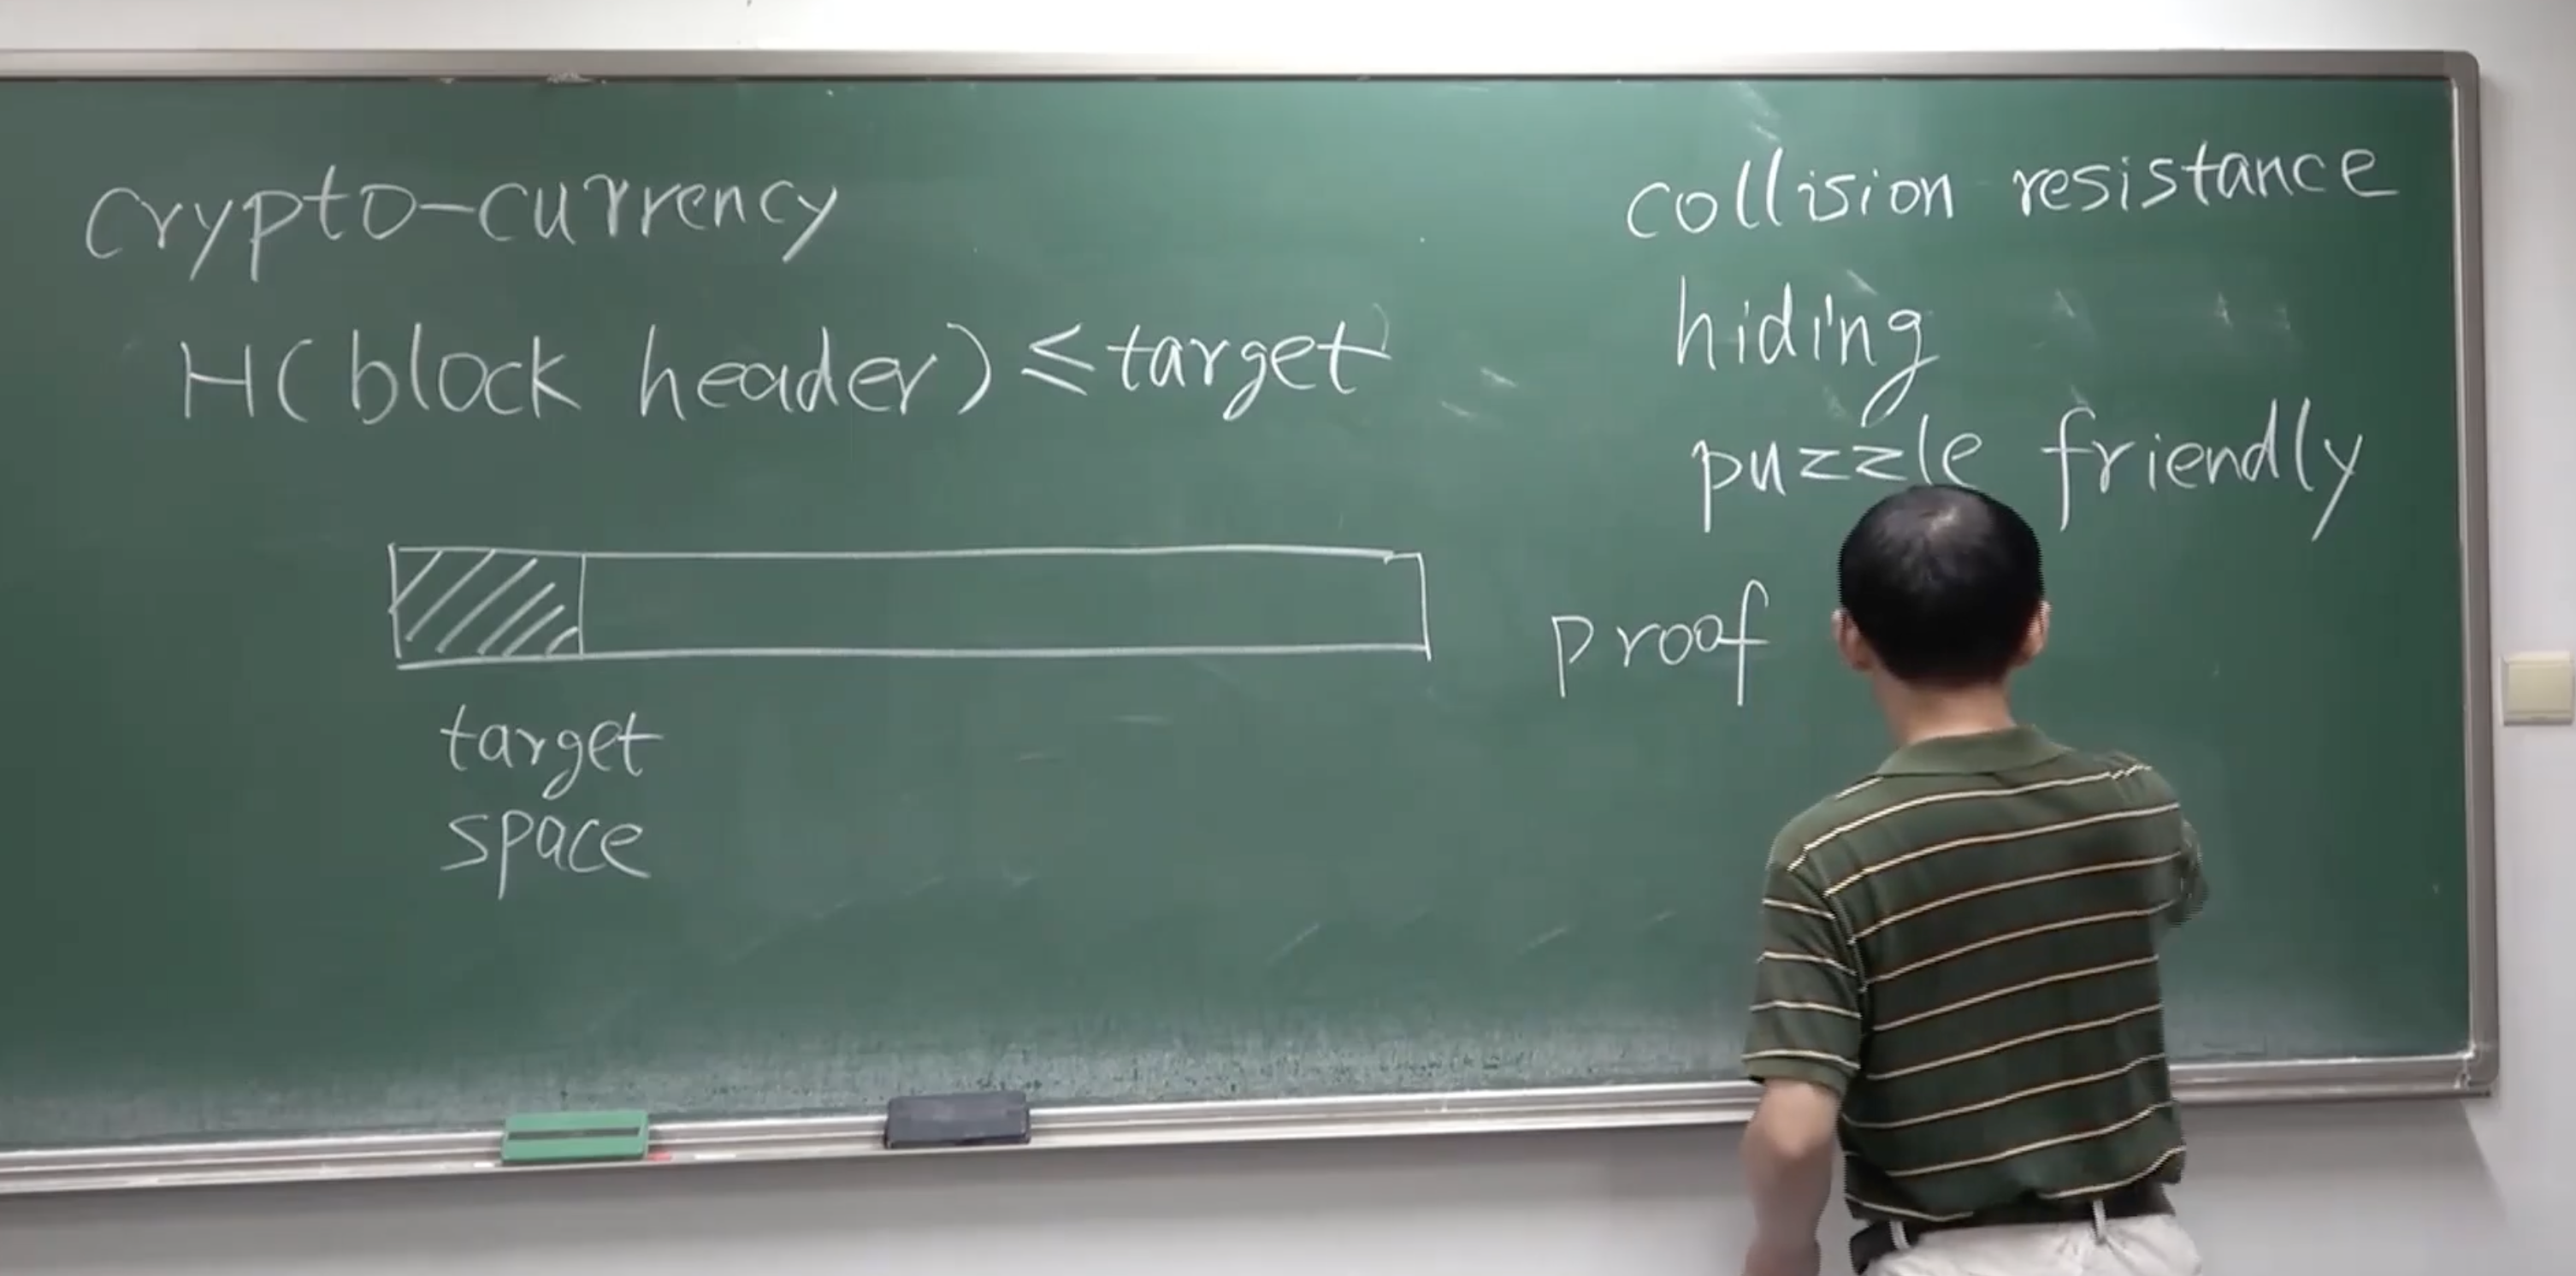 crypto-currency
H(block header) ≤ target
target
space
collision resistance
hiding
puzzle friendly
proof